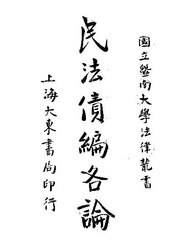 國立暨南大學法律叢書
民法債編各論
上海大東書局印行